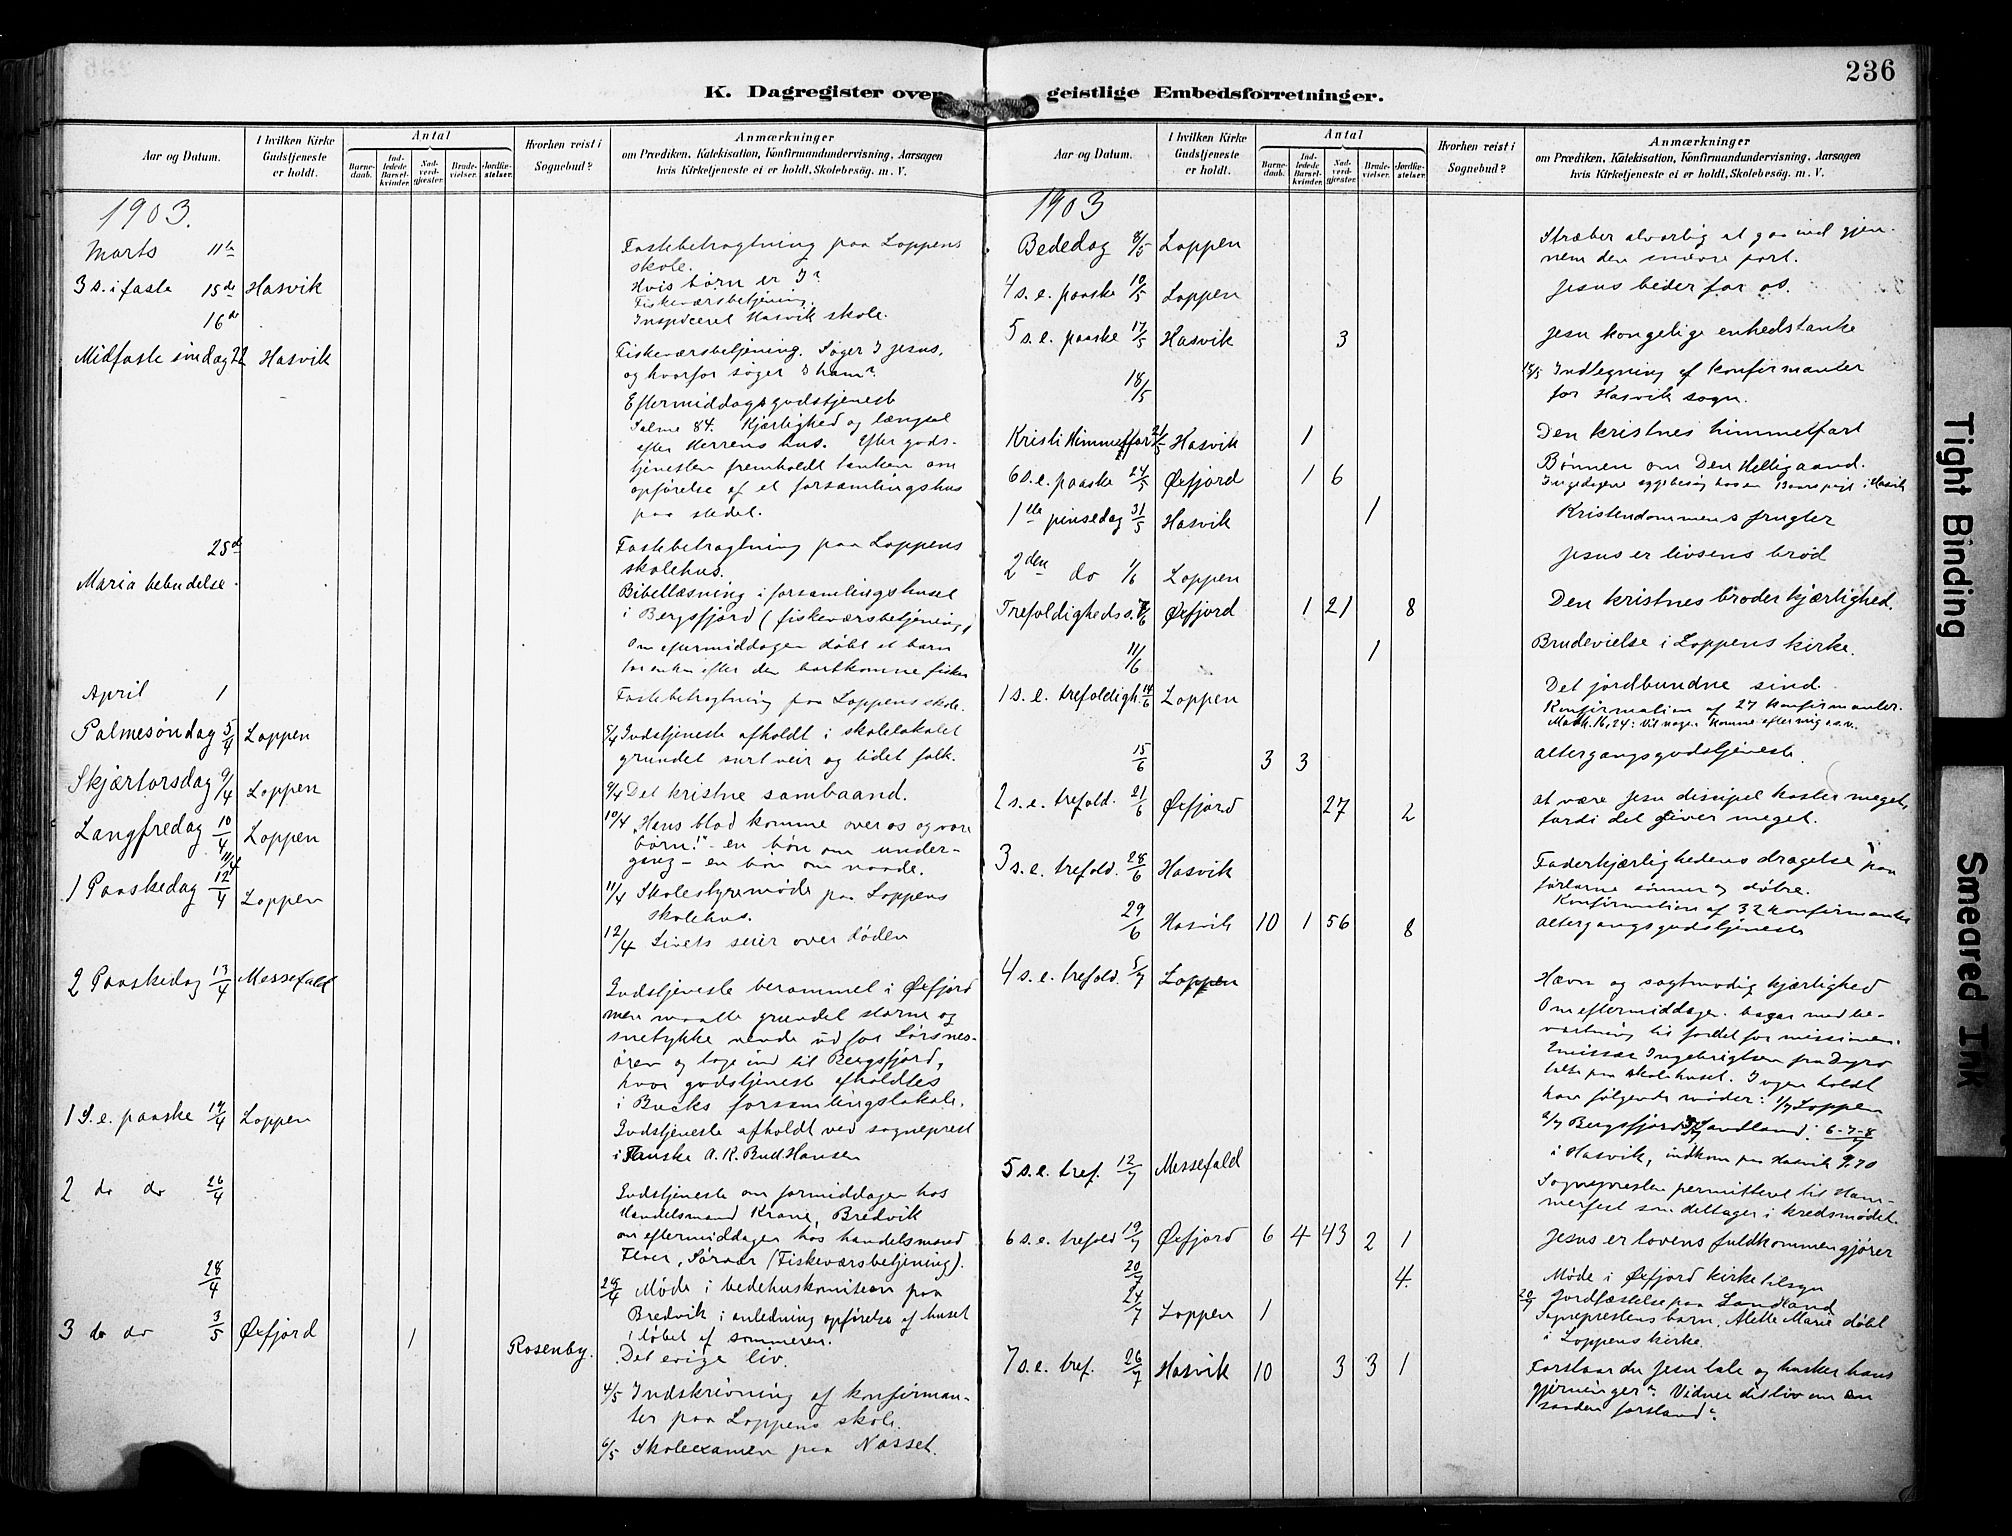 236
K. Dagregister over geistlige Embedsforretninger.
Aar og Datum.
I hvilken Kirke Gudstjeneste er holdt.
Antal
Barne-daab.
Ind-ledede Barsel-kvinder.
Nad-verd-gjester.
Brude-vielser.
Jordfæ-stelser.
Hvorhen reist i Sognebud?
Anmærkninger
om Prædiken, Katekisation, Konfirmandundervisning, Aarsagen
hvis Kirketjeneste ei er holdt, Skolebesøg. m. V.
1903.
Marts 11te
Fastebetragtning paa Loppens
skole.
3 s. i faste 15de Hasvik
Hvis børn er I?
Fiskeværsbetjening.
16de
Inspiceret Hasvik skole.
Midfaste søndag 22 Hasvik
Fiskeværsbetjening. Søger I Jesus,
og hvorfor søger I ham?
Eftermiddagsgudstjeneste
Salme 84. Kjærlighed og længsel
efter Herrens hus. Efter guds-
tjenesten fremholdt tanken om
opførelse af et forsamlingshus
paa stedet.
25de
Fastebetragtning paa Loppens
skolehus.
Maria bebudelse.
Bibellæsning i forsamlingshuset
i Bergsfjord (fiskeværsbetjening)
Om eftermiddagen døbt et barn
for enken efter den bortkomne fisker
April 1
Fastebetragtning paa Loppens skole.
Palmesøndag 5/4 Loppen
5/4 Gudstjeneste afholdt i skolelokalet
grundet surt veir og lidet folk.
Skjærtorsdag 9/4 Loppen
9/4 Det kristne sambaand.
Langfredag 10/4 Loppen
10/4 "Hans blod komme over os og vore
børn!" - en bøn om under-
gang - en bøn om naade.
11/4
1 Paaskedag 12/4 Loppen
11/4 Skolestyremøde paa Loppens
skolehus.
12/4 Livets seier over døden
2 Paaskedag 13/4 Messefald
Gudstjeneste berammet i Øxfjord
men maatte grundet storm og
snetykke vende ud for Lørsnes-
øren og tage ind til Bergsfjord,
hvor gudstjeneste afholdtes
i Bucks forsamlingslokale.
1 S. e. paaske 19/4 Loppen
Gudstjeneste afholdt ved sogneprest
i Fauske A. R. Bull Hansen
2 do do 26/4
Gudstjeneste om formiddagen hos
Handelsmand Krane, Bredvik
om eftermiddagen hos handelsmand
Flver, Sørvær (Fiskeværsbetjening).
28/4
28/4 Møde i bedehuskomiteen paa
Bredvik i anledning opførelse af huset
i løbet af sommeren.
3 do do 3/5 Øxfjord 1 Rosenby.
Det evige liv.
4/5 Indskrivning af konfirman-
ter paa Loppens skole.
6/5 Skoleexamen paa Næsset.
Aar og Datum.
I hvilken Kirke Gudstjeneste er holdt.
Antal
Barne-daab.
Ind-ledede Barsel-kvinder.
Nad-verd-gjester.
Brude-vielser.
Jordfæ-stelser.
Hvorhen reist i Sognebud?
Anmærkninger
om Prædiken, Katekisation, Konfirmandundervisning, Aarsagen
hvis Kirketjeneste ei er holdt, Skolebesøg. m. V.
1903
Bededag 8/5 Loppen
Stræber alvorlig at gaa ind gjen-
nem den snevre port.
4 s. e. paaske 10/5 Loppen
Jesus beder for os.
5 s. e. paaske 17/5 Hasvik 3
Jesu kongelige enhedstanke
18/5
18/5 Indlegning af konfirmanter
for Hasvik sogn.
Kristi Himmelfart 21/5 Hasvik 1
Den kristnes himmelfart
6 s. e. paaske 24/5 Øxfjord 1 6
Bønnen om Den Helligaand.
sygebesøg hos en 13 aars pige i Hasvik
1ste pinsedag 31/5 Hasvik 1
Kristendommens frugter
2den do 1/6 Loppen
Jesus er livsens brød
Trefoldigheds s. 7/6 Øxfjord 1 21 8
Den kristnes broderkjærlighed.
11/6 1
Brudevielse i Loppens kirke.
1 s. e. trefoldigh. 14/6 Loppen
Det jordbundne sind.
Konfirmation af 27 konfirmanter.
Math. 16,24: Vil nogen komme efter mig o.s.v.
15/6 3 3
altergangsgudstjeneste.
2 s. e. trefold. 21/6 Øxfjord 27 2
at være Jesu discipel koster meget,
fordi det giver meget.
3 s. e. trefold. 28/6 Hasvik
Faderkjærlighedens dragelse paa
fortabte sønner og døtre.
Konfirmation af 32 konfirmanter
29/6 Hasvik 10 1 56 8
altergangsgudstjeneste
4 s. e. trefold. 5/7 Loppen
Hævn og sagtmodig kjærlighed
Om eftermiddagen bazar med be-
vertning til fordel for missionen.
Emissær Ingebrigtsen fra Dyrø
talte paa skolehuset. I ugen holdt
han følgende møder: 1/7 Loppen
2/7 Bergsfjord 3/7 Sandland. 6-7-8/7
i Hasvik, indkom paa Hasvik 9.70
5 s. e. tref. 12/7 Messefald
Sognepresten permitteret til Ham-
merfest som deltager i kredsmødet.
6 s. e. trefold 19/7 Øxfjord 6 4 43 2 1
Jesus er lovens fuldkommengjører
20/7 4.
Møde i Øxfjord kirketilsyn
20/7 Jordfæstelse paa Sandland
24/7 Loppen 1
Sogneprestens barn, Alette Marie døbt
i Loppens kirke.
7 s. e. tref. 26/7 Hasvik 10 3 3 1
Forstaar du Jesu tale og husker hans
gjerninger? Vidner dit liv om en
saadan forstand?
Tight Binding
Smeared Ink